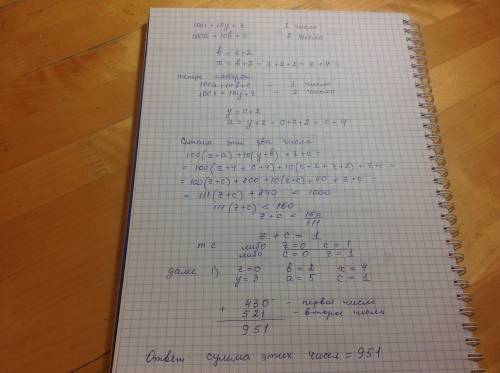 100x + 10y + z 1 число
100a + 10b + c 2 число
b = z+2
x = b+2 = z+2+2 = z+4
теперь наоборот
100a+10b+c - 1 число
100x + 10y + z - 2 число
y = c+2
a = y+2 = c+2+2 = c+4
Сложим эти два числа
100(x+a) + 10(y+b) + z+c =
= 100(z+4 + c+4) + 10(c+2 + z+2) + z+c =
= 100(z+c) + 800 + 10(z+c) + 40 + z+c
= 111(z+c) + 840 < 1000
111(z+c) < 160
z+c < 160/111
z + c = 1
т е либо z=0 c=1
либо c=0 z=1
далее 1) z=0 b=2 x=4
y=3 a=5 c=1
+ 430 - первое число
521 - второе число
951
Ответ сумма этих чисел = 951